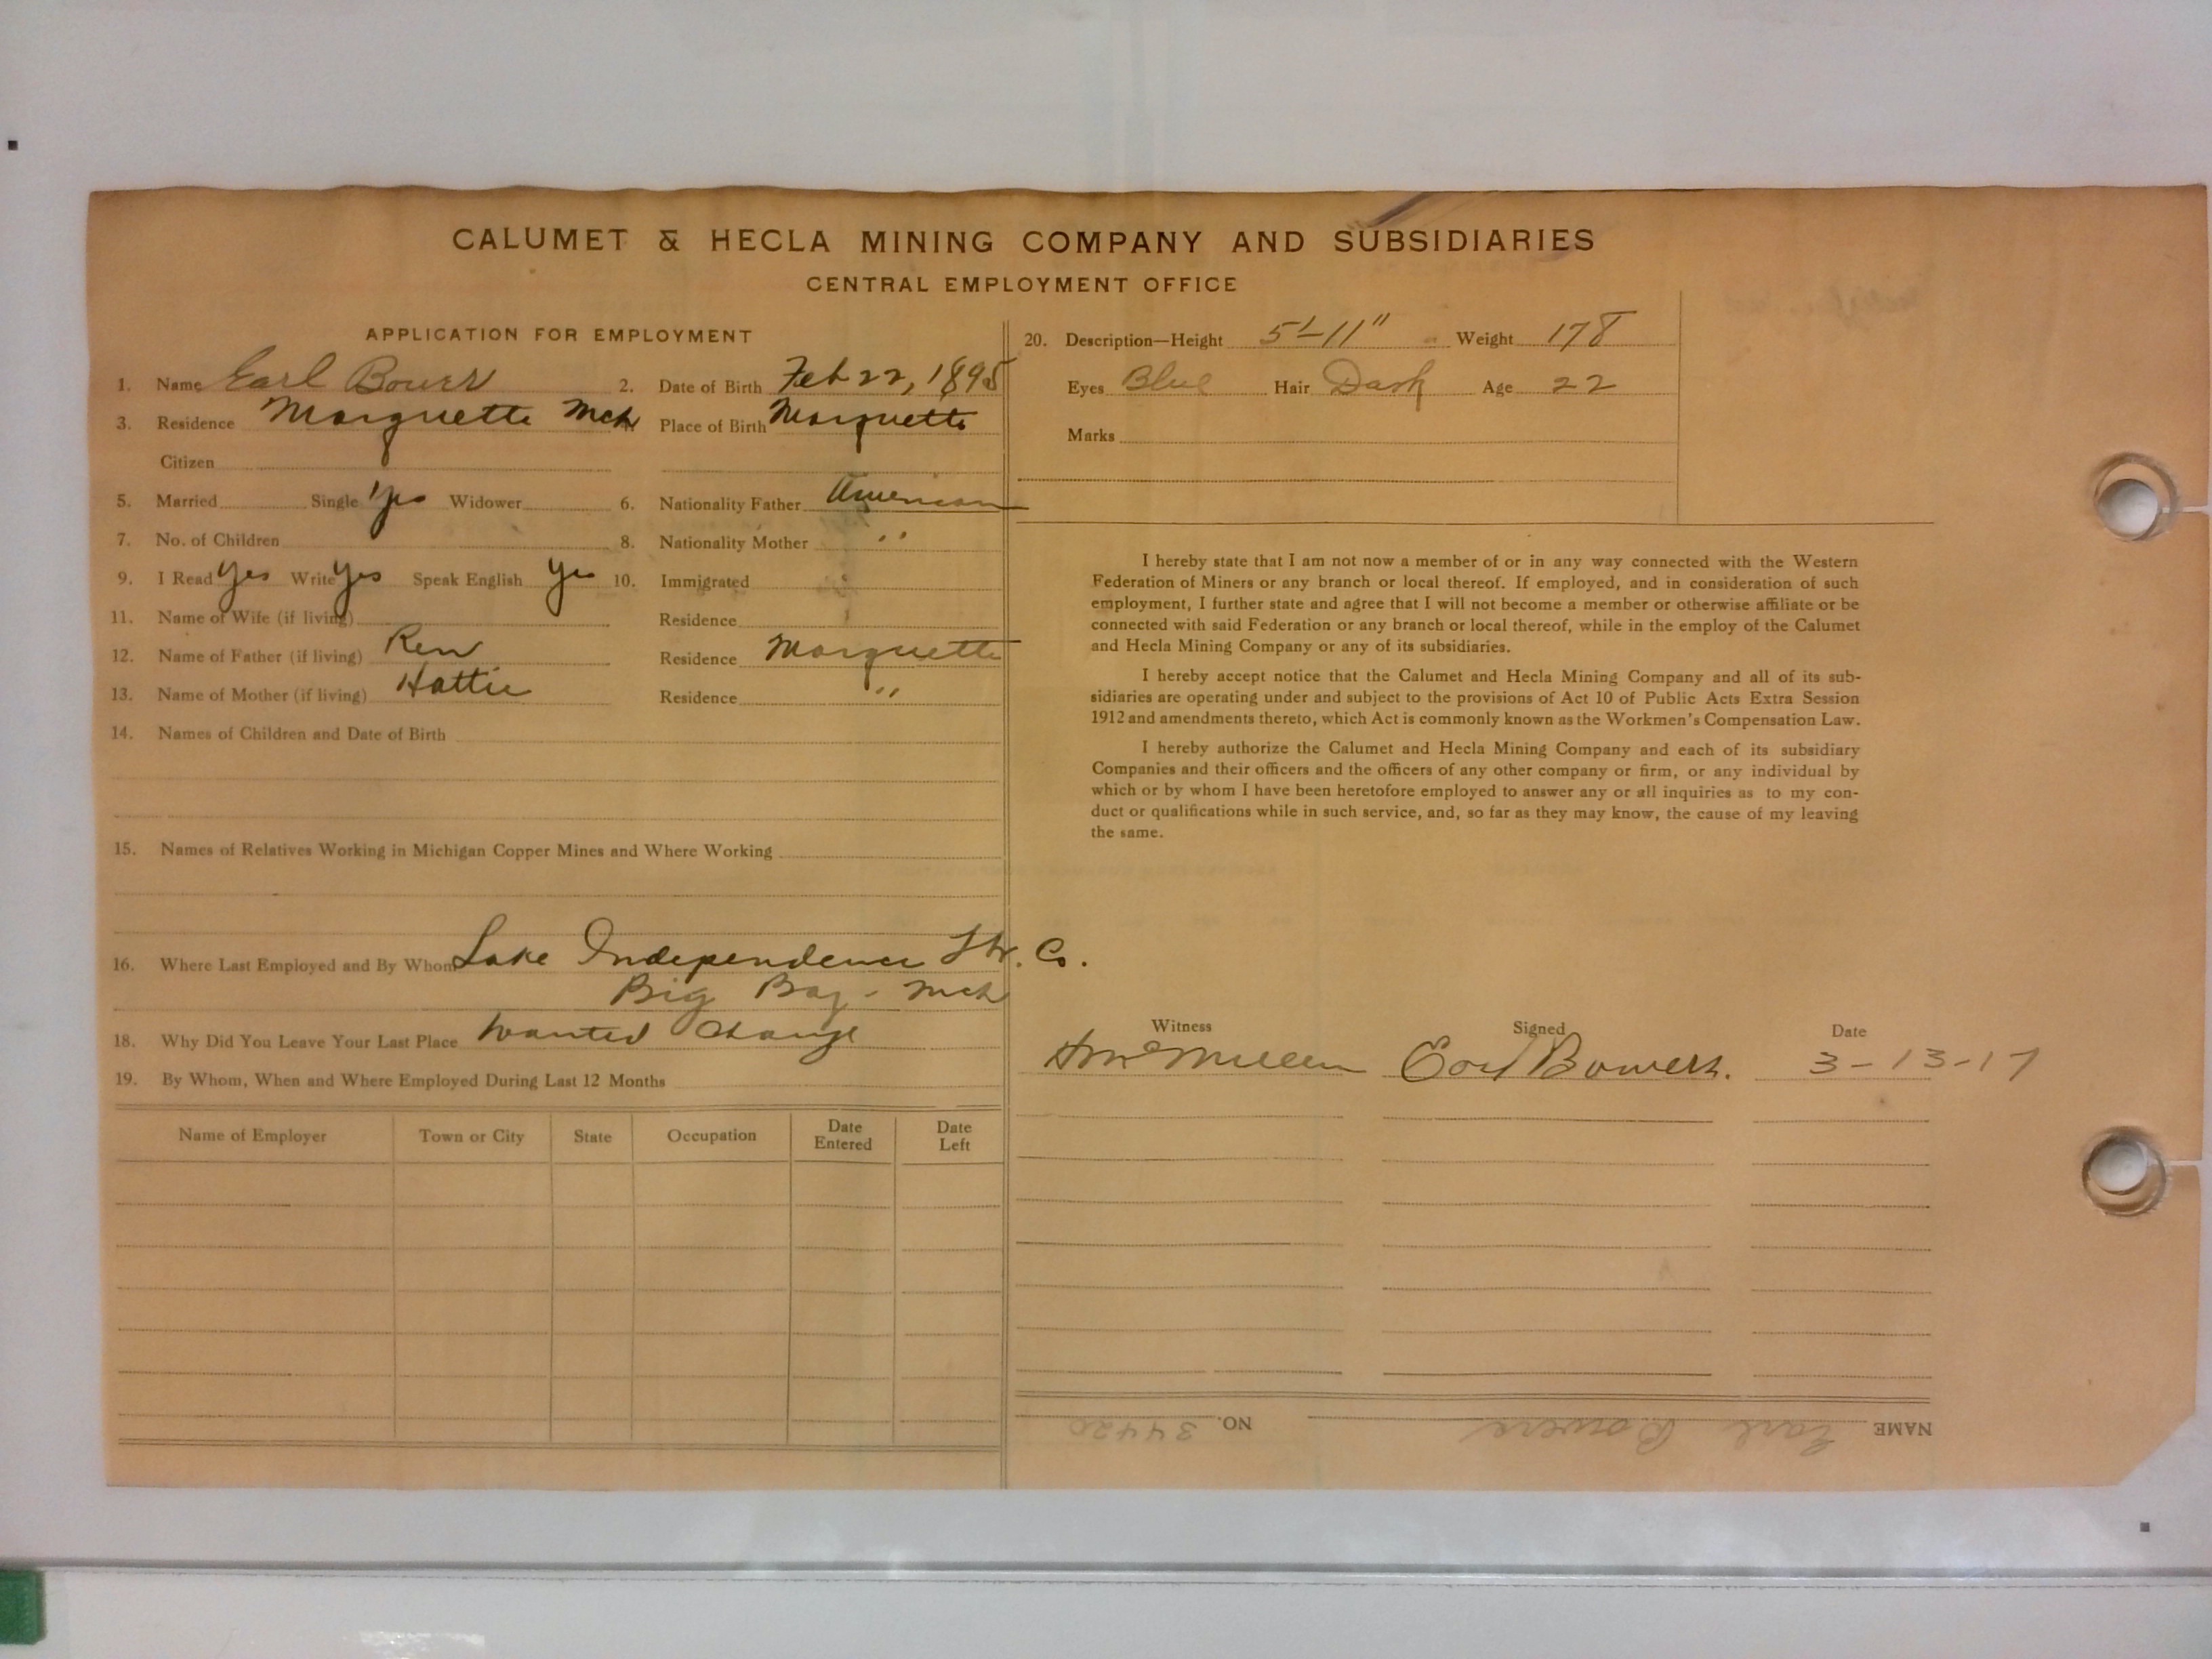 CALUMET & HECLA MINING COMPANY AND SUBSIDIARIES
CENTRAL EMPLOYMENT OFFICE
APPLICATION FOR EMPLOYMENT
1. Name Earl Bowers 2. Date of Birth Feb 22, 1895
3. Residence Marquette Mch 4. Place of Birth Marquette
Citizen
5. Married Single Yes Widower 6. Nationality Father American
7. No. of Children 8. Nationality Mother "
9. I Read Yes Write Yes Speak English Yes 10. Immigrated
11. Name of Wife (if living) Residence
12. Name of Father (if living) Ren Residence Marquette
13. Name of Mother (if living) Hattie Residence "
14. Names of Children and Date of Birth
15. Names of Relatives Working in Michigan Copper Mines and Where Working
16. Where Last Employed and By Whom Lake Independence Lbr. Co.
Big Bay - Mch
18. Why Did You Leave Your Last Place Wanted Change
19. By Whom, When and Where Employed During Last 12 Months
Name of Employer Town or City State Occupation Date Entered Date Left
20. Description—Height 5'-11" Weight 178
Eyes Blue Hair Dark Age 22
Marks
I hereby state that I am not now a member of or in any way connected with the Western
Federation of Miners or any branch or local thereof. If employed, and in consideration of such
employment, I further state and agree that I will not become a member or otherwise affiliate or be
connected with said Federation or any branch or local thereof, while in the employ of the Calumet
and Hecla Mining Company or any of its subsidiaries.
I hereby accept notice that the Calumet and Hecla Mining Company and all of its sub-
sidiaries are operating under and subject to the provisions of Act 10 of Public Acts Extra Session
1912 and amendments thereto, which Act is commonly known as the Workmen's Compensation Law.
I hereby authorize the Calumet and Hecla Mining Company and each of its subsidiary
Companies and their officers and the officers of any other company or firm, or any individual by
which or by whom I have been heretofore employed to answer any or all inquiries as to my con-
duct or qualifications while in such service, and, so far as they may know, the cause of my leaving
the same.
Witness Signed Date
McMillen Earl Bowers. 3-13-17
NAME Earl Bowers NO. 34420